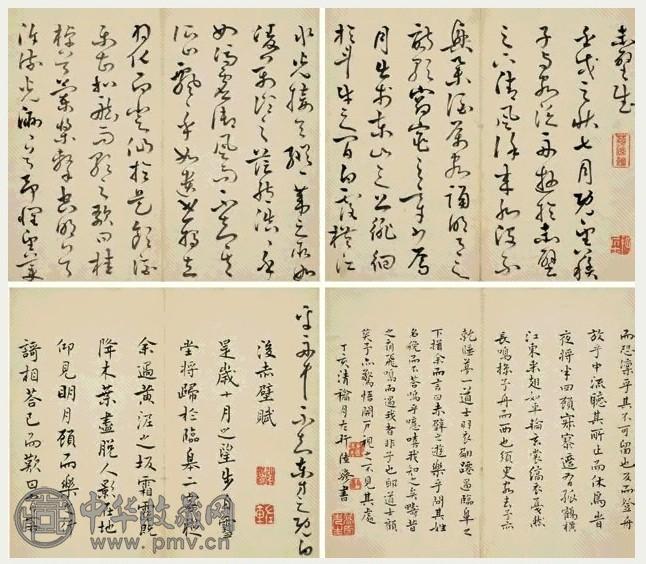 赤壁賦
壬戌之秋七月既望蘇
子与客泛舟遊於赤壁
之下清風徐來水波不
興舉酒屬客誦明月之
詩歌窈窕之章少焉
月出於東山之上徘徊
於斗牛之間白露橫江
水光接天縱一葦之所如
凌萬頃之茫然浩浩乎
如馮虛御風而不知其所
止飄飄乎如遺世獨立
羽化而登仙於是飲酒
樂甚扣舷而歌之歌曰桂
棹兮蘭槳擊空明兮
泝流光渺渺兮予懷望美
而恐凜乎其不可留也反而登舟
放乎中流聽其所止而休焉時
夜將半四顧寂寥適有孤鶴橫
江東來翅如車輪玄裳縞衣戛然
長鳴掠予舟而西也須臾客去予亦
就睡夢一道士羽衣蹁躚過臨皋之
下揖余而言曰赤壁之遊樂乎問其姓
名俛而不答嗚呼噫嘻我知之矣疇昔
之夜飛鳴而過我者非子也耶道士顧
笑予亦驚悟開戶視之不見其處
丁亥清和月 陸 書
舟中不知東方之既白
後赤壁賦
是歲十月之望步自雪
堂將歸於臨皋二客從
余過黃泥之坂霜露既
降木葉盡脫人影在地
仰見明月顧而樂之行
謌相答已而歎曰有客
中华收藏网
www.pmv.cn